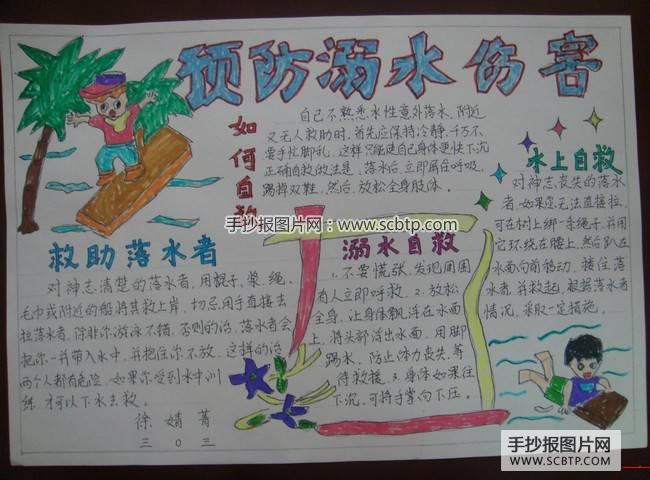 预防溺水伤害
如何自救
自己不熟悉水性意外落水,附近
又无人救助时,首先应保持冷静,千万不
要手忙脚乱,这样只能使自己身体更快下沉
正确自救的法是,落水后,立即屏住呼吸,
踢掉双鞋,然后,放松全身肢体.
手抄报图片网:www.scbtp.com
水上自救
对神志丧失的落水
者,如果您无法直接拉,
可在树上绑一条绳子,并用
它环绕在腰上,然后趴在
水面向前移动,搂住落
水者,并救起,根据落水者
情况,采取一定措施.
救助落水者
对神志清楚的落水者,用棍子、桨、绳、
毛巾或附近的船将其救上岸,切忌用手直接去
拉落水者,除非你游泳不错,否则的话,落水者会
把你一并带入水中,并把住你不放,这样的话
两个人都有危险,如果你受到水中训
练,才可以下水去救.
徐婧菁
三〇三
溺水自救
1.不要慌张,发现周围
有人立即呼救.2.放松
全身,让身体飘浮在水面
上,将头部浮出水面,用脚
踢水,防止体力丧失,等
待救援.3.身体如果往
下沉,可将手掌向下压.
手抄报图片网
WWW.SCBTP.COM